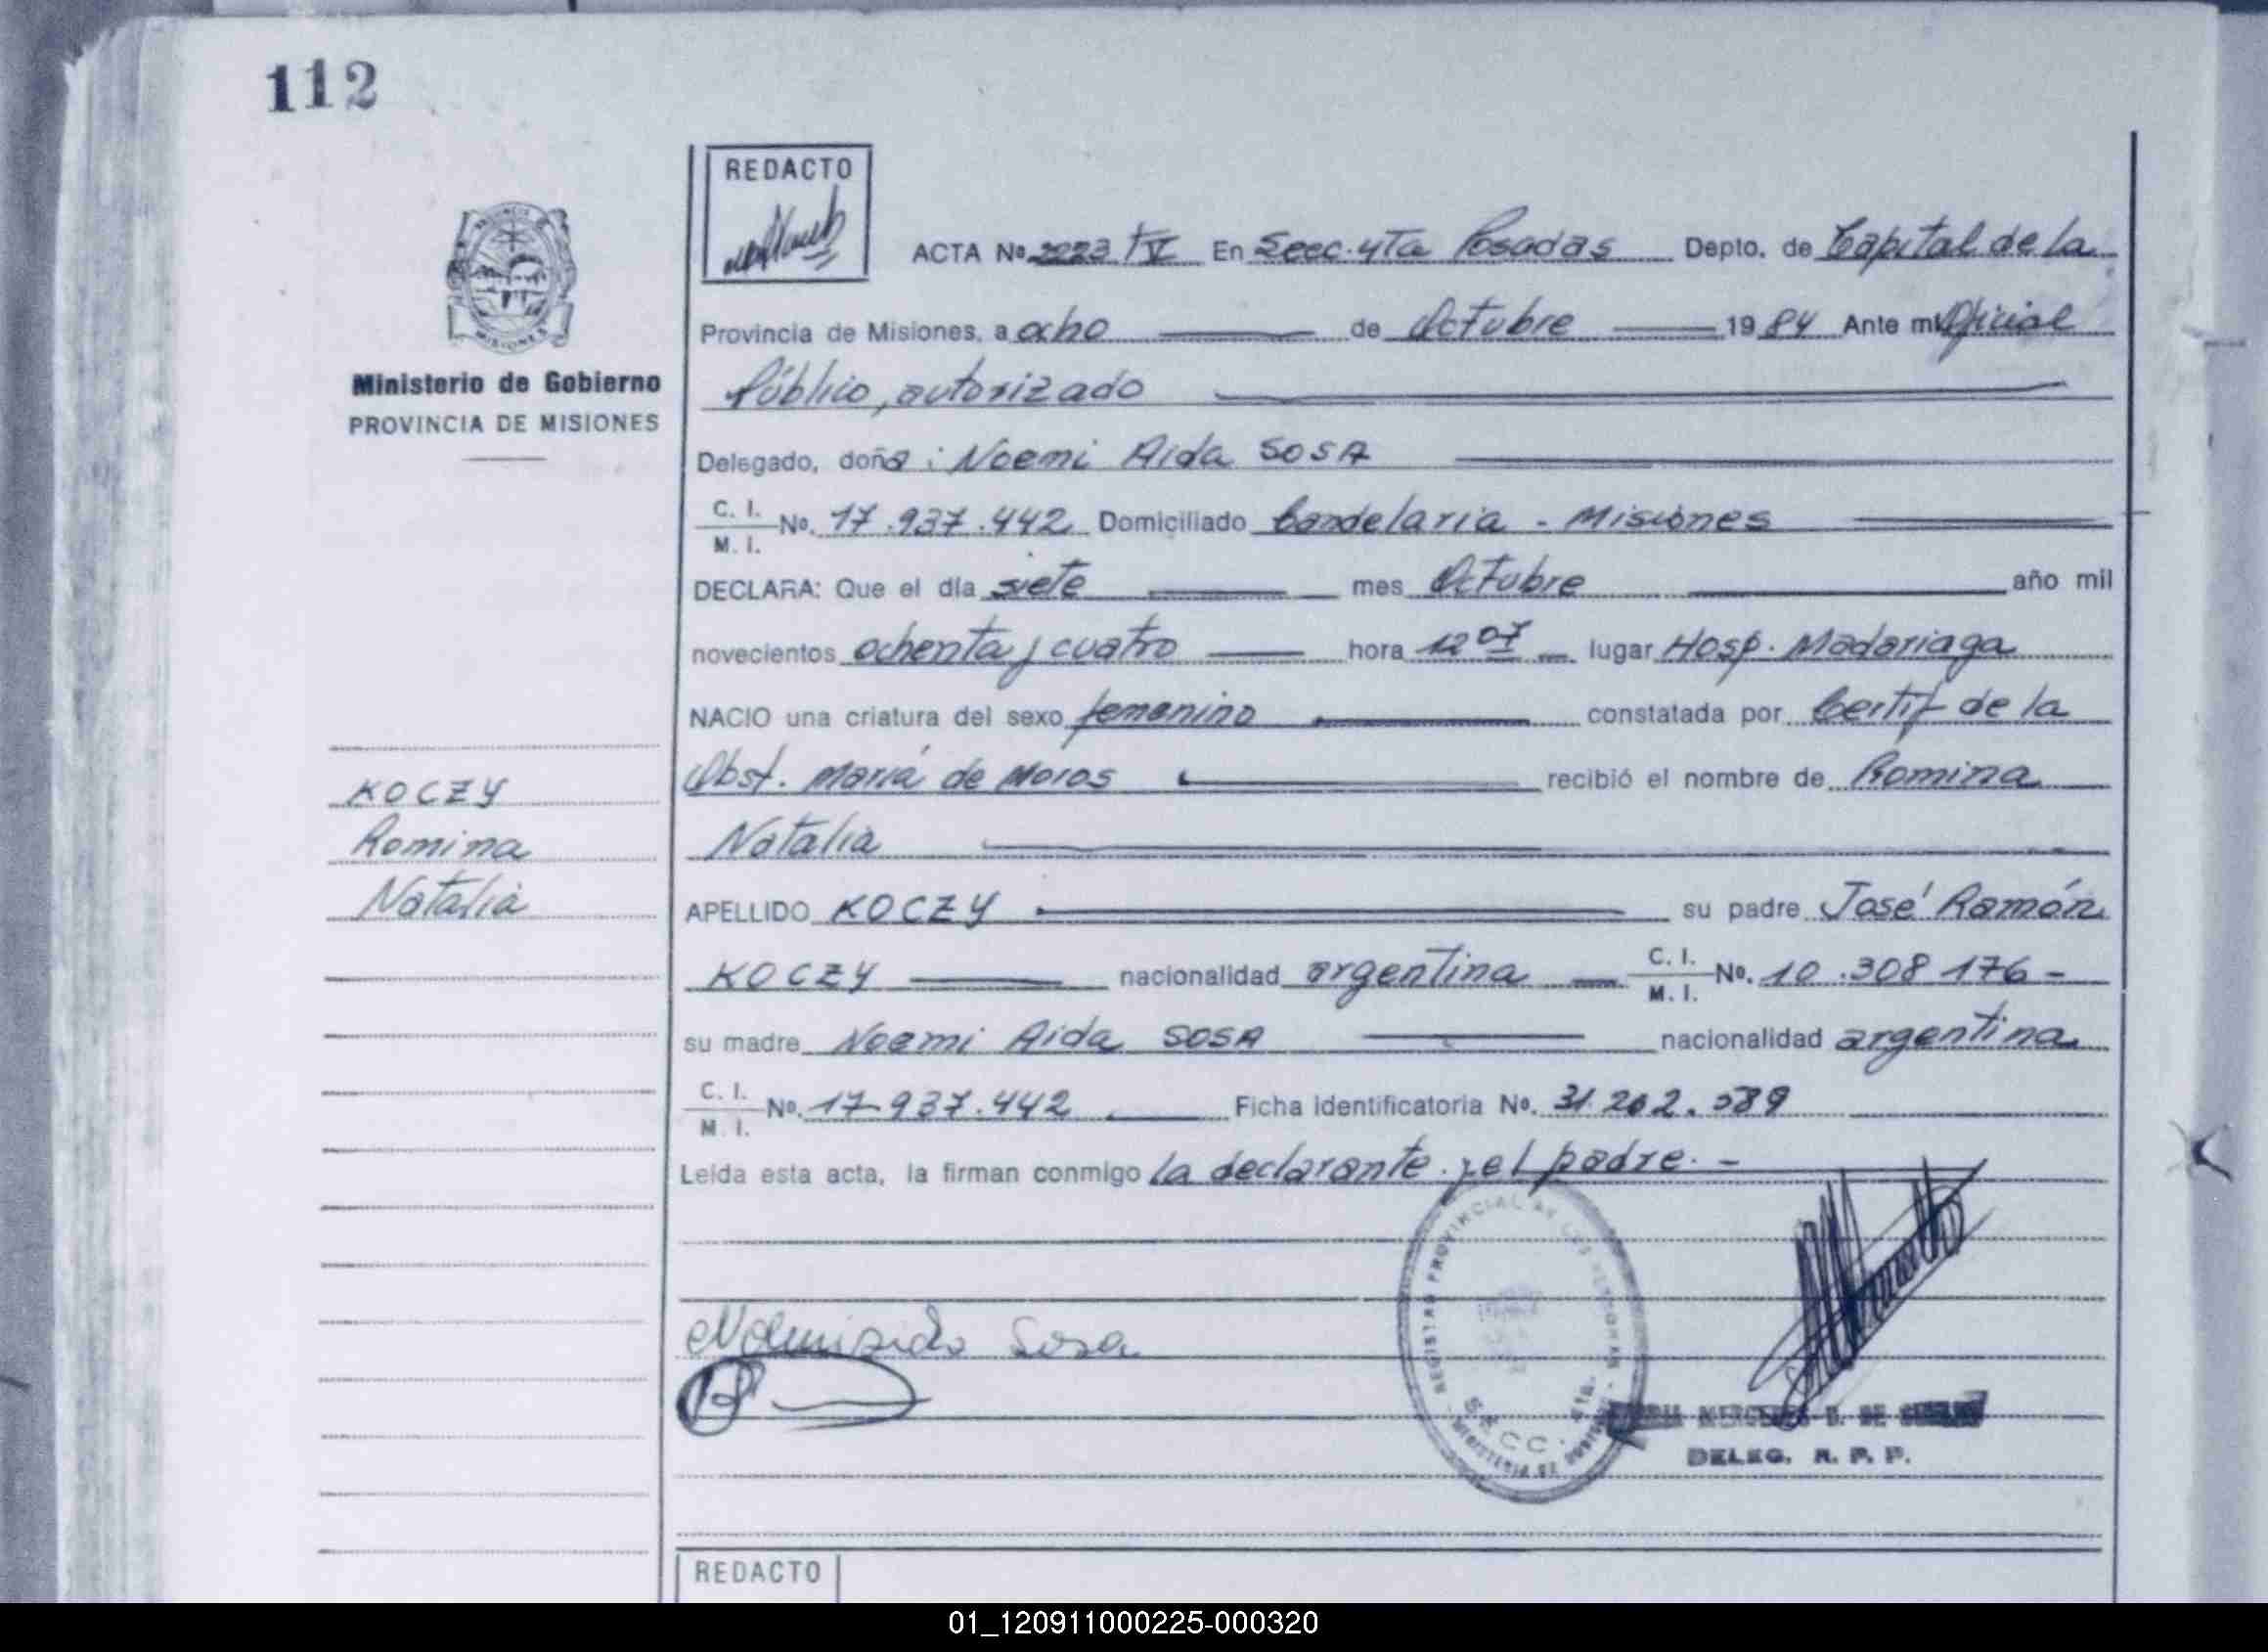 112
REDACTO
ACTA Nº 2223 TV En Secc. 4Ta Posadas Depto. de Capital de la
Provincia de Misiones, a ocho de Octubre 1984 Ante mi Oficial
Público, autorizado
Ministerio de Gobierno
PROVINCIA DE MISIONES
Delegado, doña: Noemi Aida SOSA
C. I.
M. I. Nº. 17.937.442 Domiciliado Candelaria - Misiones
DECLARA: Que el día siete mes Octubre año mil
novecientos ochenta y cuatro hora 12 07 lugar Hosp. Madariaga
NACIO una criatura del sexo femenino constatada por Certif de la
Obst. María de Moros recibió el nombre de Romina
Natalia
KOCZY
Romina
Natalia
APELLIDO KOCZY su padre José Ramón
KOCZY nacionalidad argentina C. I. M. I. Nº. 10.308 176-
su madre Noemi Aida SOSA nacionalidad argentina
C. I.
M. I. Nº. 17.937.442 Ficha Identificatoria Nº. 31.202.589
Leída esta acta, la firman conmigo la declarante y el padre. -
Sosa
REGISTRO PROVINCIAL DE LAS PERSONAS
SECC. 4ta.
MERCEDES D. DE
DELEG. R. P. P.
REDACTO
01_120911000225-000320